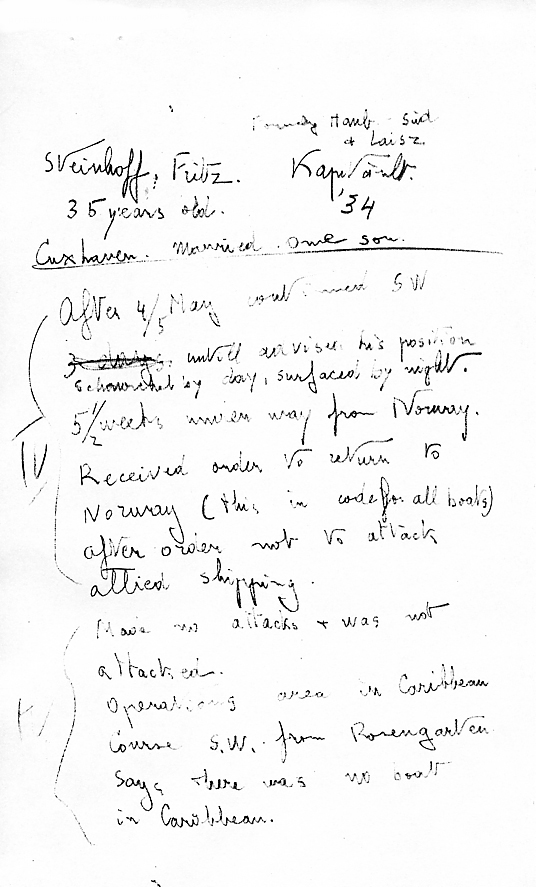 Formerly Hamb - Süd
+ Laisz.
Steinhoff, Fritz. Kapitänlt.
35 years old. '34
Cuxhaven. Married. one son.
After 4/5 May continued SW
3 days, until arrives his position
Schnorchel by day, surfaced by night.
5 1/2 weeks under way from Norway.
IV
Received order to return to
Norway (this in code for all boats)
after order not to attack
allied shipping.
Made no attacks + was not
attacked.
Operations area in Caribbean
Course S.W. from Rosengarten
Says there was no boat
in Caribbean.